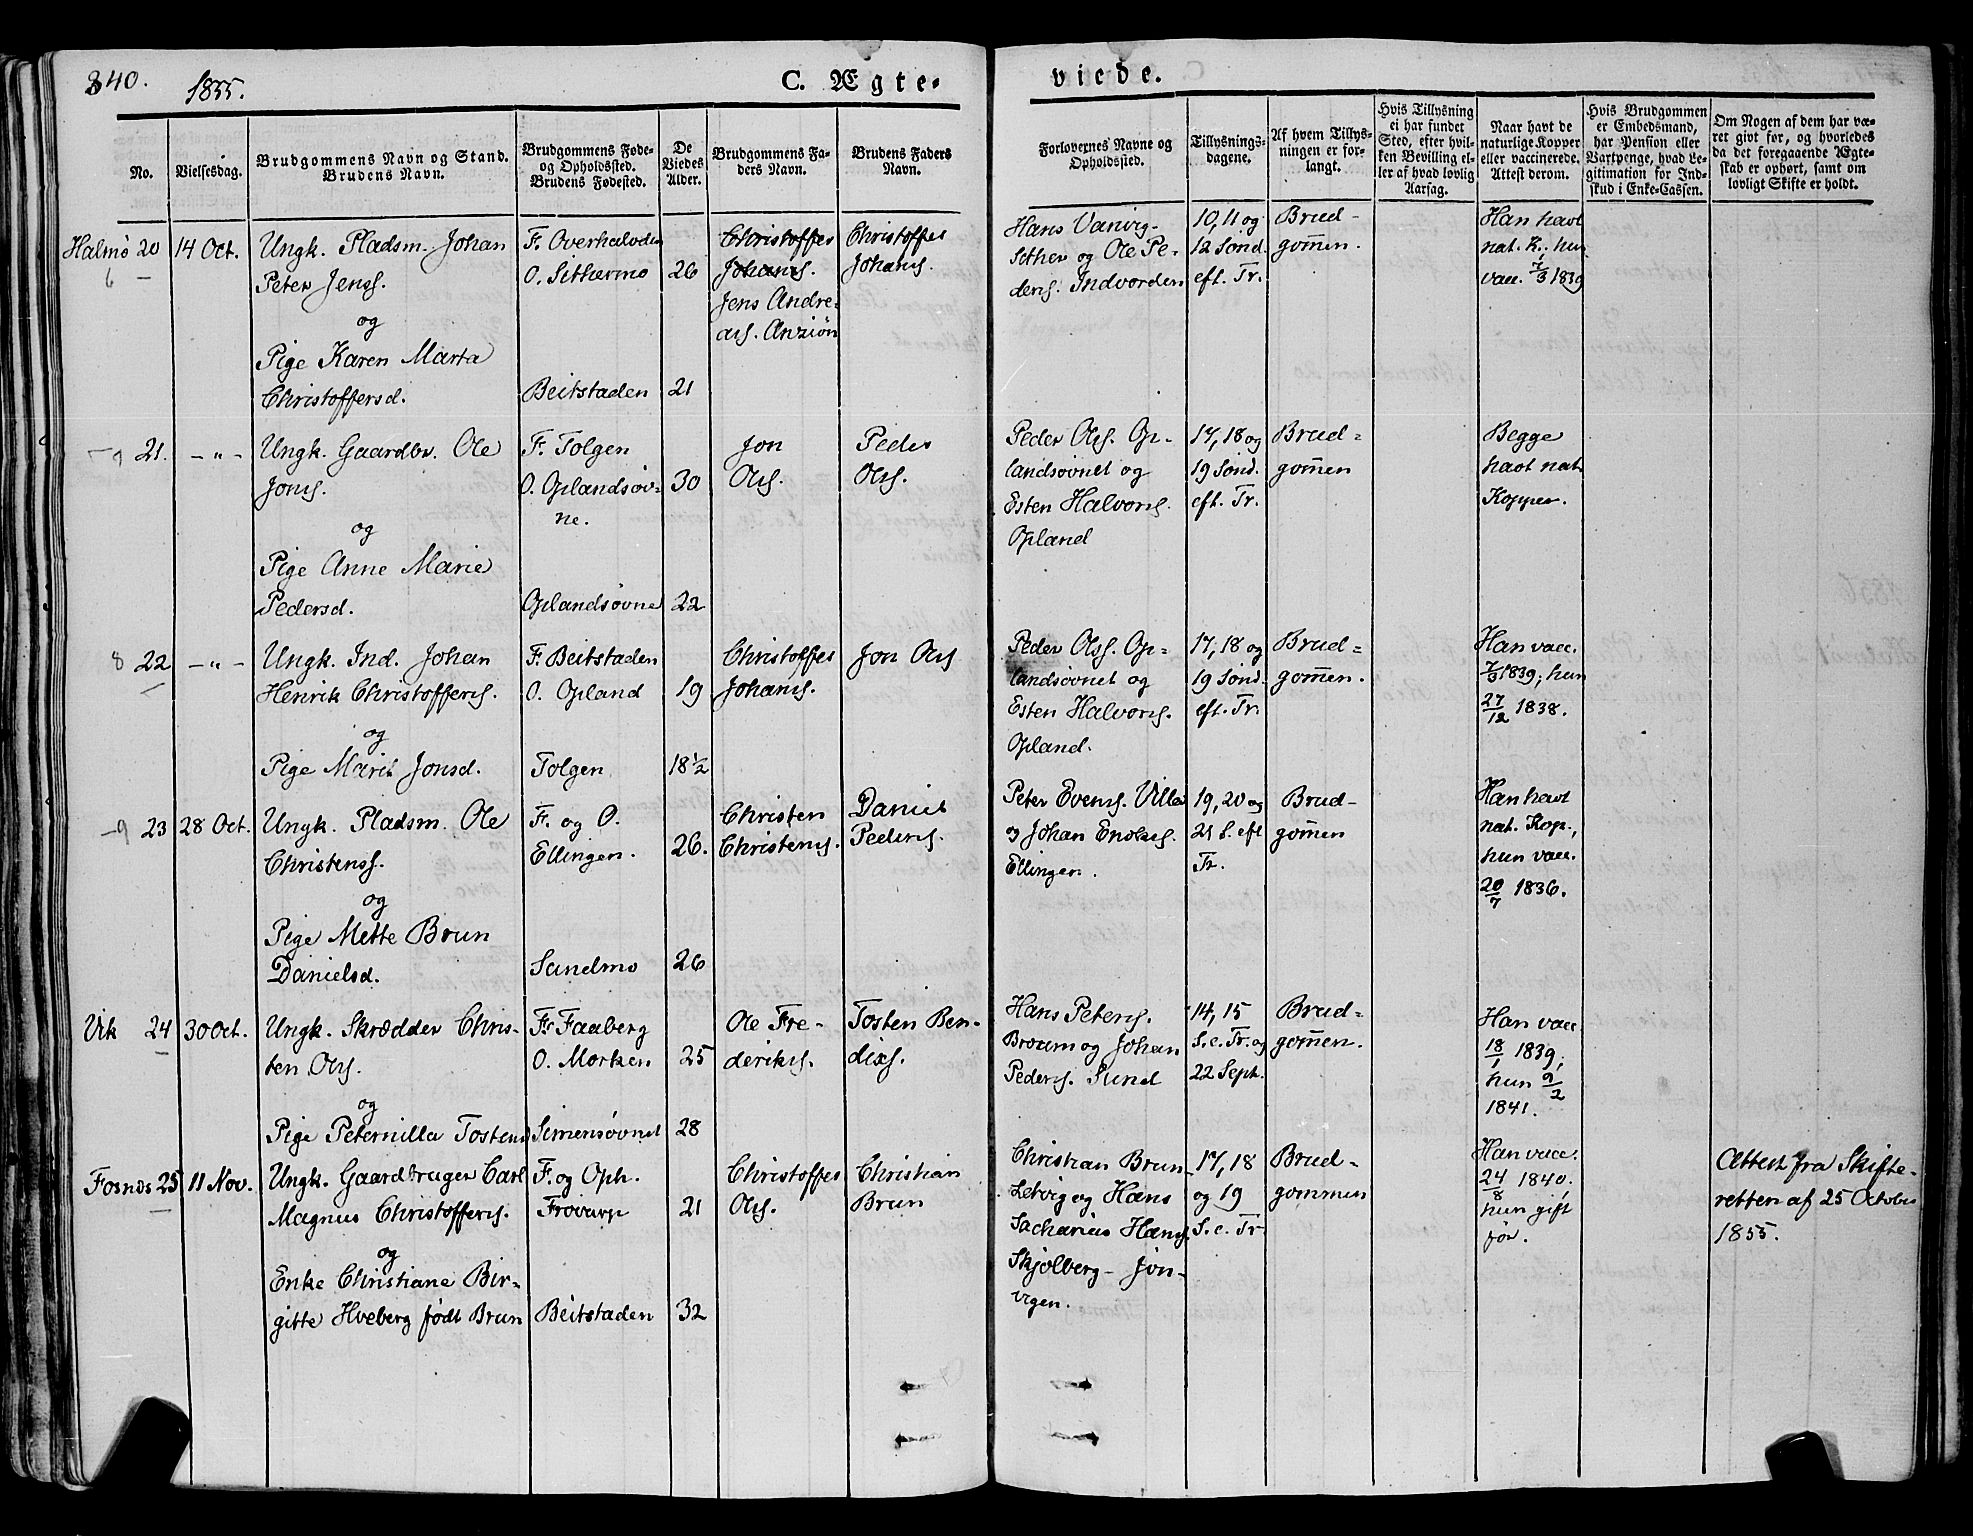 340.
1855.
C. Ægte-
viede.
No.
Vielsesdag.
Brudgommens Navn og Stand.
Brudens Navn.
Brudgommens Føde-
og Opholdssted.
Brudens Fødested.
De
Viedes
Alder.
Brudgommens Fa-
ders Navn.
Brudens Faders
Navn.
Forlovernes Navne og
Opholdssted.
Tillysnings-
dagene.
Af hvem Tillys-
ningen er for-
langt.
Hvis Tillysning
ei har fundet
Sted, efter hvil-
ken Bevilling el-
ler af hvad lovlig
Aarsag.
Naar havt de
naturlige Kopper
eller vaccinerede.
Attest derom.
Hvis Brudgommen
er Embedsmand,
har Pension eller
Vartpenge, hvad Le-
gitimation for Ind-
skud i Enke-Cassen.
Om Nogen af dem har væ-
ret givt før, og hvorledes
da det foregaaende Ægte-
skab er ophørt, samt om
lovligt Skifte er holdt.
Halmø 20
6
14 Oct.
Ungk. Pladsm. Johan
Peter Jens.
og
Pige Karen Marta
Christoffersd.
F. Overhalvden
O. Sithermo
Beitstaden
26
21
Christoffer
Johans.
Jens Andre-
as. Anziøn
Christoffer
Johans.
Hans Vanvig-
Sether og Ole Pe-
ders. Indvorden
10, 11 og
12 Sønd.
eft. Tr.
Brud-
gom̄en.
Han havt
nat. K.; hun
vacc. 7/3 1839
9 21.
-"-
Ungk. Gaardbr. Ole
Jons.
og
Pige Anne Marie
Pedersd.
F. Tolgen
O. Oplandsøv-
ne.
Oplandsøvne
30
22
Jon
Ols.
Peder
Ols.
Peder Ols. Op-
landsøvnet og
Esten Halvors.
Opland
17, 18 og
19 Sønd.
eft. Tr.
Brud=
gom̄en
Begge
havt nat.
Kopper.
8 22
-"-
Ungk. Ind. Johan
Henrik Christoffers.
og
Pige Marit Jonsd.
F. Beitstaden
O. Opland
Tolgen
19
18 1/2
Christoffer
Johans.
Jon Ols
Peder Ols. Op-
landsøvnet og
Esten Halvors.
Opland.
17, 18 og
19 Sønd.
eft. Tr.
Brud=
gom̄en.
Han vacc.
7/3 1839; hun
27/12 1838.
9 23
28 Oct.
Ungk. Pladsm. Ole
Christens.
og
Pige Mette Brun
Danielsd.
F. og O.
Ellingen.
Sandmo
26.
26
Christen
Christens.
Daniel
Peders.
Peter Evens. Villa
og Johan Enoks.
Ellingen.
19, 20 og
21 S. eft
Tr.
Brud-
gom̄en
Han havt
nat. Kop.,
hun vacc.
20/7 1836.
Vik 24
30 Oct.
Ungk. Skrædder Chris-
ten Ols.
og
Pige Peternilla Tostens
F. Faaberg
O. Morken
Simensøvnet
25
28
Ole Fre-
deriks.
Tosten Ben-
dixs.
Hans Peters.
Broum og Johan
Peders. Sund
14, 15
S. e. Tr. og
22 Sept.
Brud=
gom̄en.
Han vacc.
18/1 1839;
hun 9/2
1841.
Fosnes 25
11 Nov.
Ungk. Gaardbruger Carl
Magnus Christoffers.
og
Enke Christiane Bir-
gitte Hveberg født Brun
F. og Oph.
Beitstaden
21
32
Christoffer
Ols.
Christian
Brun
Christian Brun
Letvig og Hans
Sacharius Hans.
Skjølberg - Jøn-
vigen.
17, 18
og 19
S. e. Tr.
Brud=
gommen
Han vacc.
24/8 1840.
hun gift
før.
Attest fra Skifte-
retten af 25 October
1855.